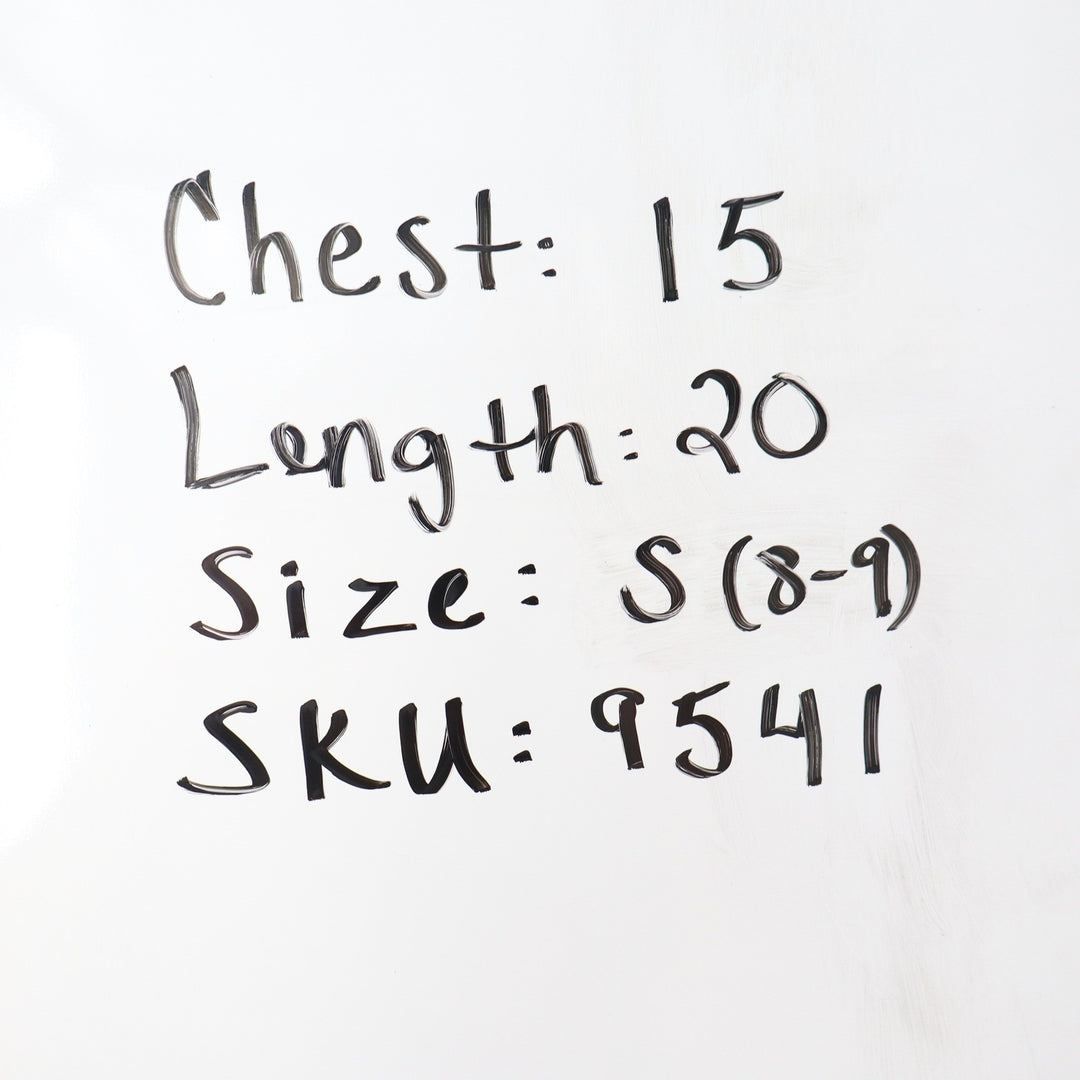 Chest: 15
Length: 20
Size: S (8-9)
SKU: 9541